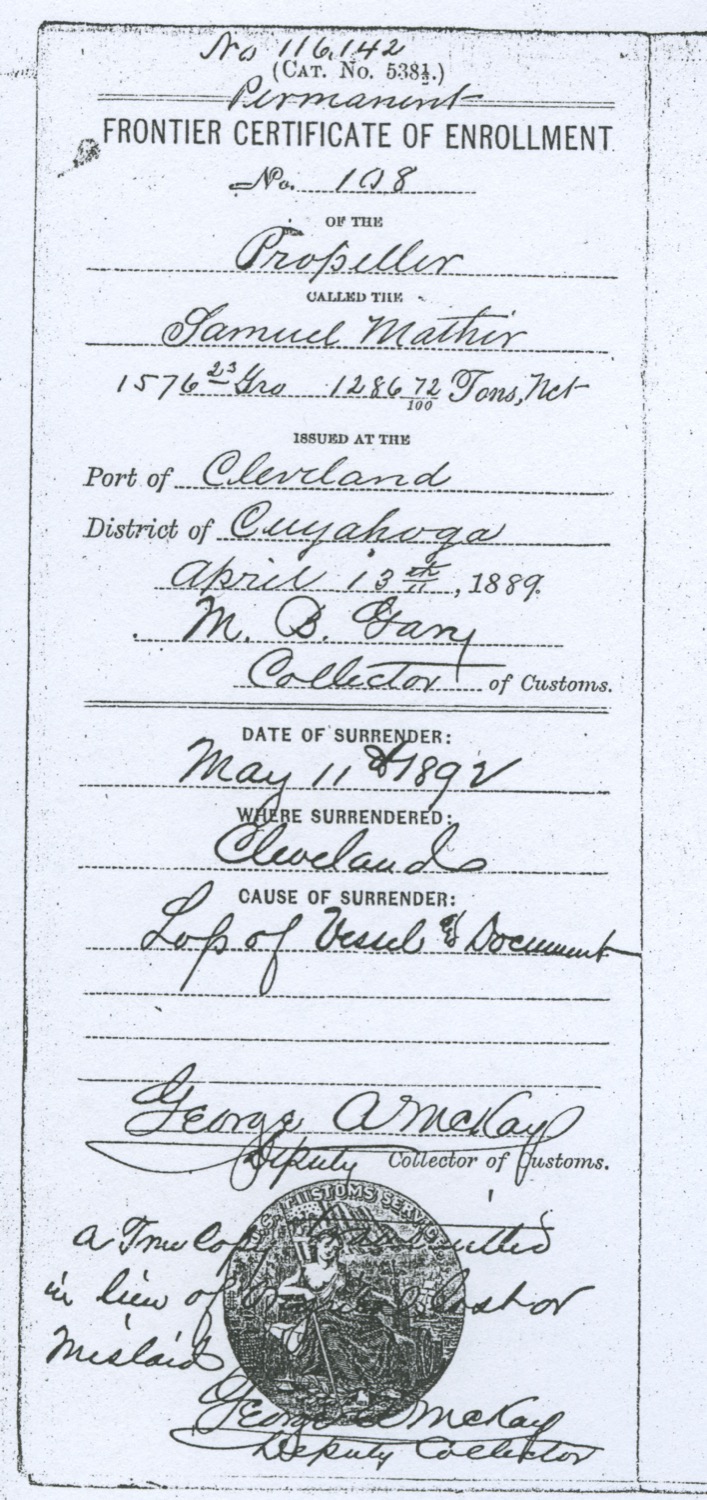 No 116,142
(CAT. No. 538½.)
Permanent
FRONTIER CERTIFICATE OF ENROLLMENT
No. 108
OF THE
Propeller
CALLED THE
Samuel Mather
1576 23 Gro 1286 72/100 Tons, Net
ISSUED AT THE
Port of Cleveland
District of Cuyahoga
April 13th, 1889.
M. B. Gary
Collector of Customs.
DATE OF SURRENDER:
May 11th 1892
WHERE SURRENDERED:
Cleveland
CAUSE OF SURRENDER:
Loss of Vessel & Document
George A McKay
Deputy Collector of Customs.
CUSTOMS SERVICE
A True Copy transmitted
in lieu of original lost or
mislaid
George A McKay
Deputy Collector